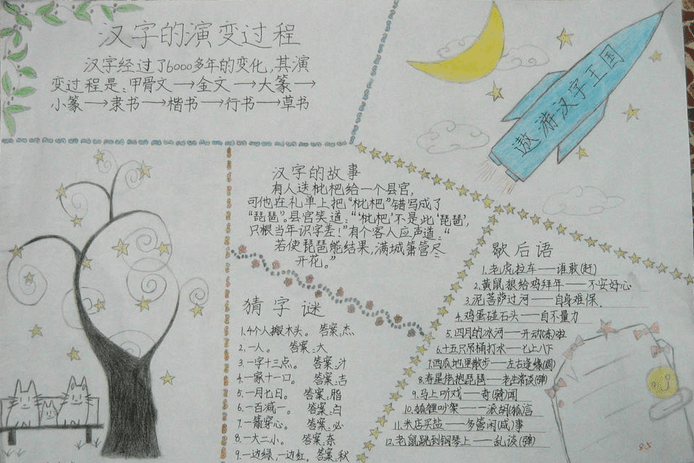 汉字的演变过程
汉字经过了6000多年的变化,其演
变过程是:甲骨文→金文→大篆→
小篆→隶书→楷书→行书→草书
遨游汉字王国
汉字的故事
有人送枇杷给一个县官,
可他在礼单上把"枇杷"错写成了
"琵琶"。县官笑道:"'枇杷'不是此'琵琶',
只恨当年识字差!"有个客人应声道:"
若使琵琶能结果,满城箫管尽
开花。"
猜字谜
1.4个人搬木头。 答案:杰
2.一人。 答案:大
3.一字十三点。 答案:汁
4.一家十一口。 答案:吉
5.一月七日。 答案:脂
6.一百减一。 答案:白
7.一箭穿心。 答案:必
8.一大二小。 答案:奈
9.一边绿,一边红。 答案:秋
歇后语
1.老虎拉车——谁敢(赶)
2.黄鼠狼给鸡拜年——不安好心
3.泥菩萨过河——自身难保.
4.鸡蛋碰石头——自不量力
5.四月的冰河——开动(冻)啦
6.十五只吊桶打水——七上八下
7.西瓜地里散步——左右逢缘(圆)
8.寿星弹琵琶——老生常谈(弹)
9.马上听戏——奇(骑)闻
10.狐狸吵架——
11.米店买盐——多管闲(咸)事
12.老鼠跳到钢琴上——乱谈(弹)